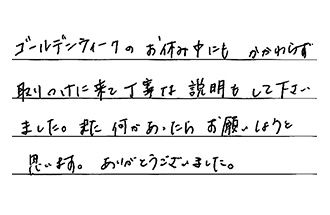 ゴールデンウィークの お休み中にも かかわらず
取りつけに来て丁寧な 説明も して下さい
ました。また 何かあったら お願いしようと
思います。 ありがとうございました。